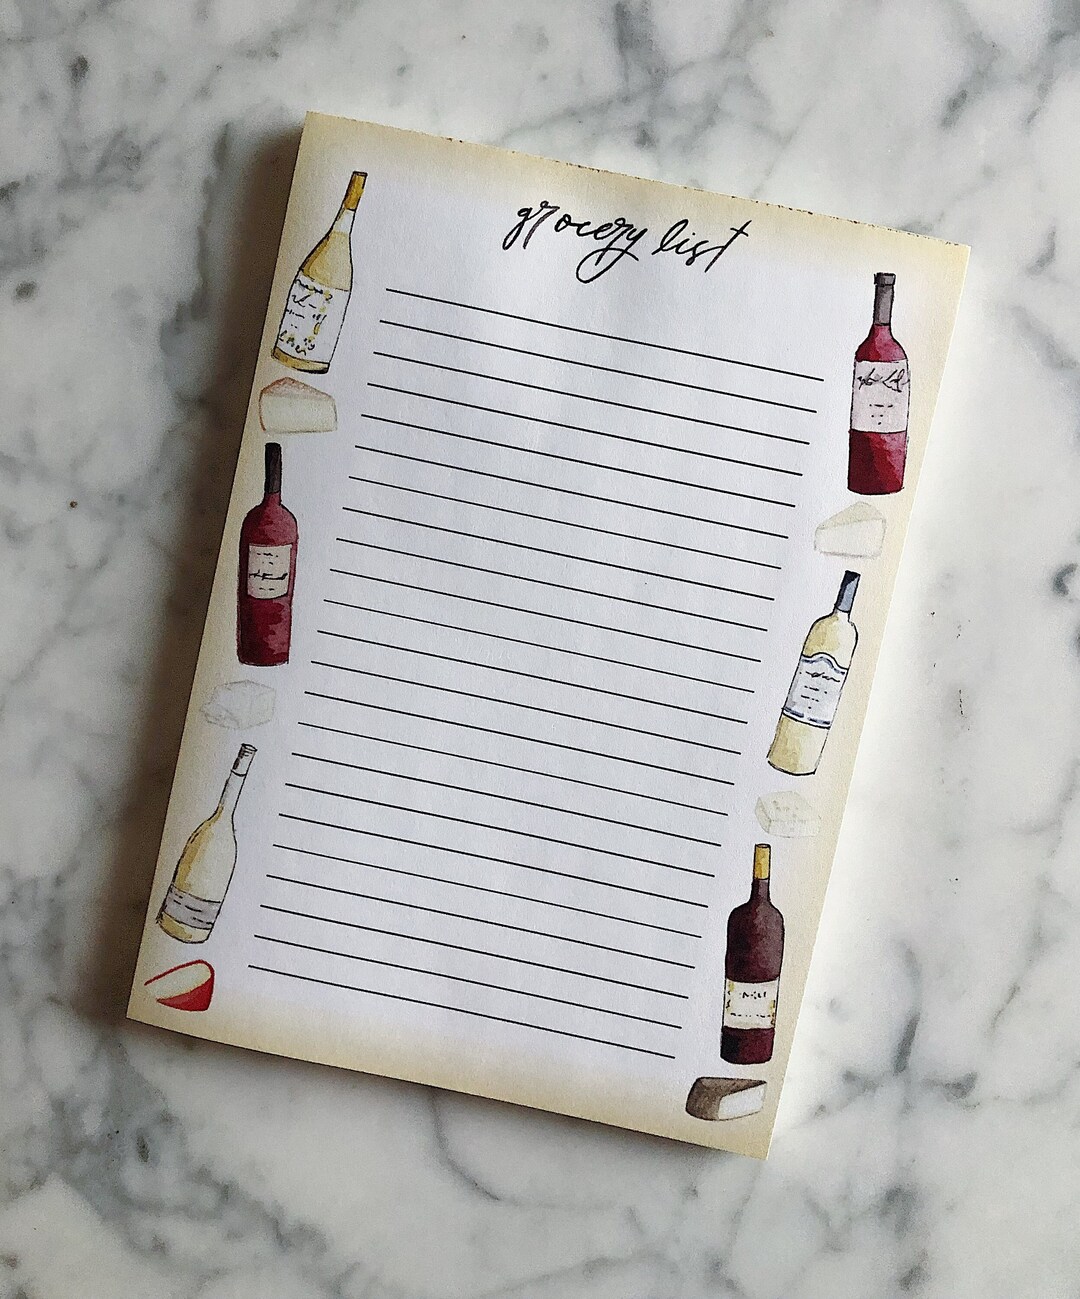 grocery list